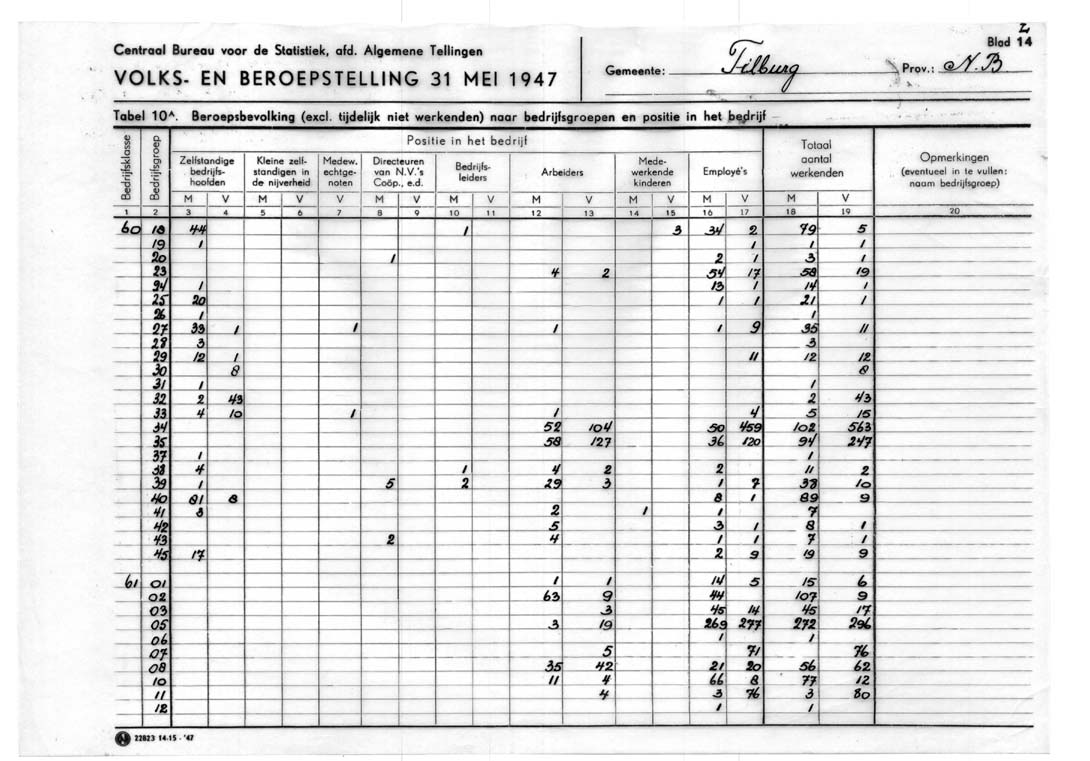 L
Centraal Bureau voor de Statistiek, afd. Algemene Tellingen
Blad 14
VOLKS- EN BEROEPSTELLING 31 MEI 1947
Gemeente: Tilburg Prov.: N.B
Tabel 10A. Beroepsbevolking (excl. tijdelijk niet werkenden) naar bedrijfsgroepen en positie in het bedrijf
Bedrijfsklasse Bedrijfsgroep Positie in het bedrijf Totaal aantal werkenden Opmerkingen (eventueel in te vullen: naam bedrijfsgroep)
Zelfstandige bedrijfshoofden Kleine zelfstandigen in de nijverheid Medew. echtgenoten Directeuren van N.V.'s Coöp., e.d. Bedrijfsleiders Arbeiders Medewerkende kinderen Employé's
M V M V V M V M V M V M V M V M V
1 2 3 4 5 6 7 8 9 10 11 12 13 14 15 16 17 18 19 20
60 18 44 1 3 34 2 79 5
19 1 1 1 1
20 1 2 1 3 1
23 4 2 54 17 58 19
24 1 13 1 14 1
25 20 1 1 21 1
26 1 1
27 33 1 1 1 1 9 35 11
28 3 3
29 12 1 11 12 12
30 8 8
31 1 1
32 2 43 2 43
33 4 10 1 1 4 5 15
34 52 104 50 459 102 563
35 58 127 36 120 94 247
37 1 1
38 4 1 4 2 2 11 2
39 1 5 2 29 3 1 7 38 10
40 81 8 8 1 89 9
41 3 2 1 1 7
42 5 3 1 8 1
43 2 4 1 1 7 1
45 17 2 9 19 9
61 01 1 1 14 5 15 6
02 63 9 44 107 9
03 3 45 14 45 17
05 3 19 269 277 272 296
06 1 1
07 5 71 76
08 35 42 21 20 56 62
10 11 4 66 8 77 12
11 4 3 76 3 80
12 1 1
22823 14-15-'47